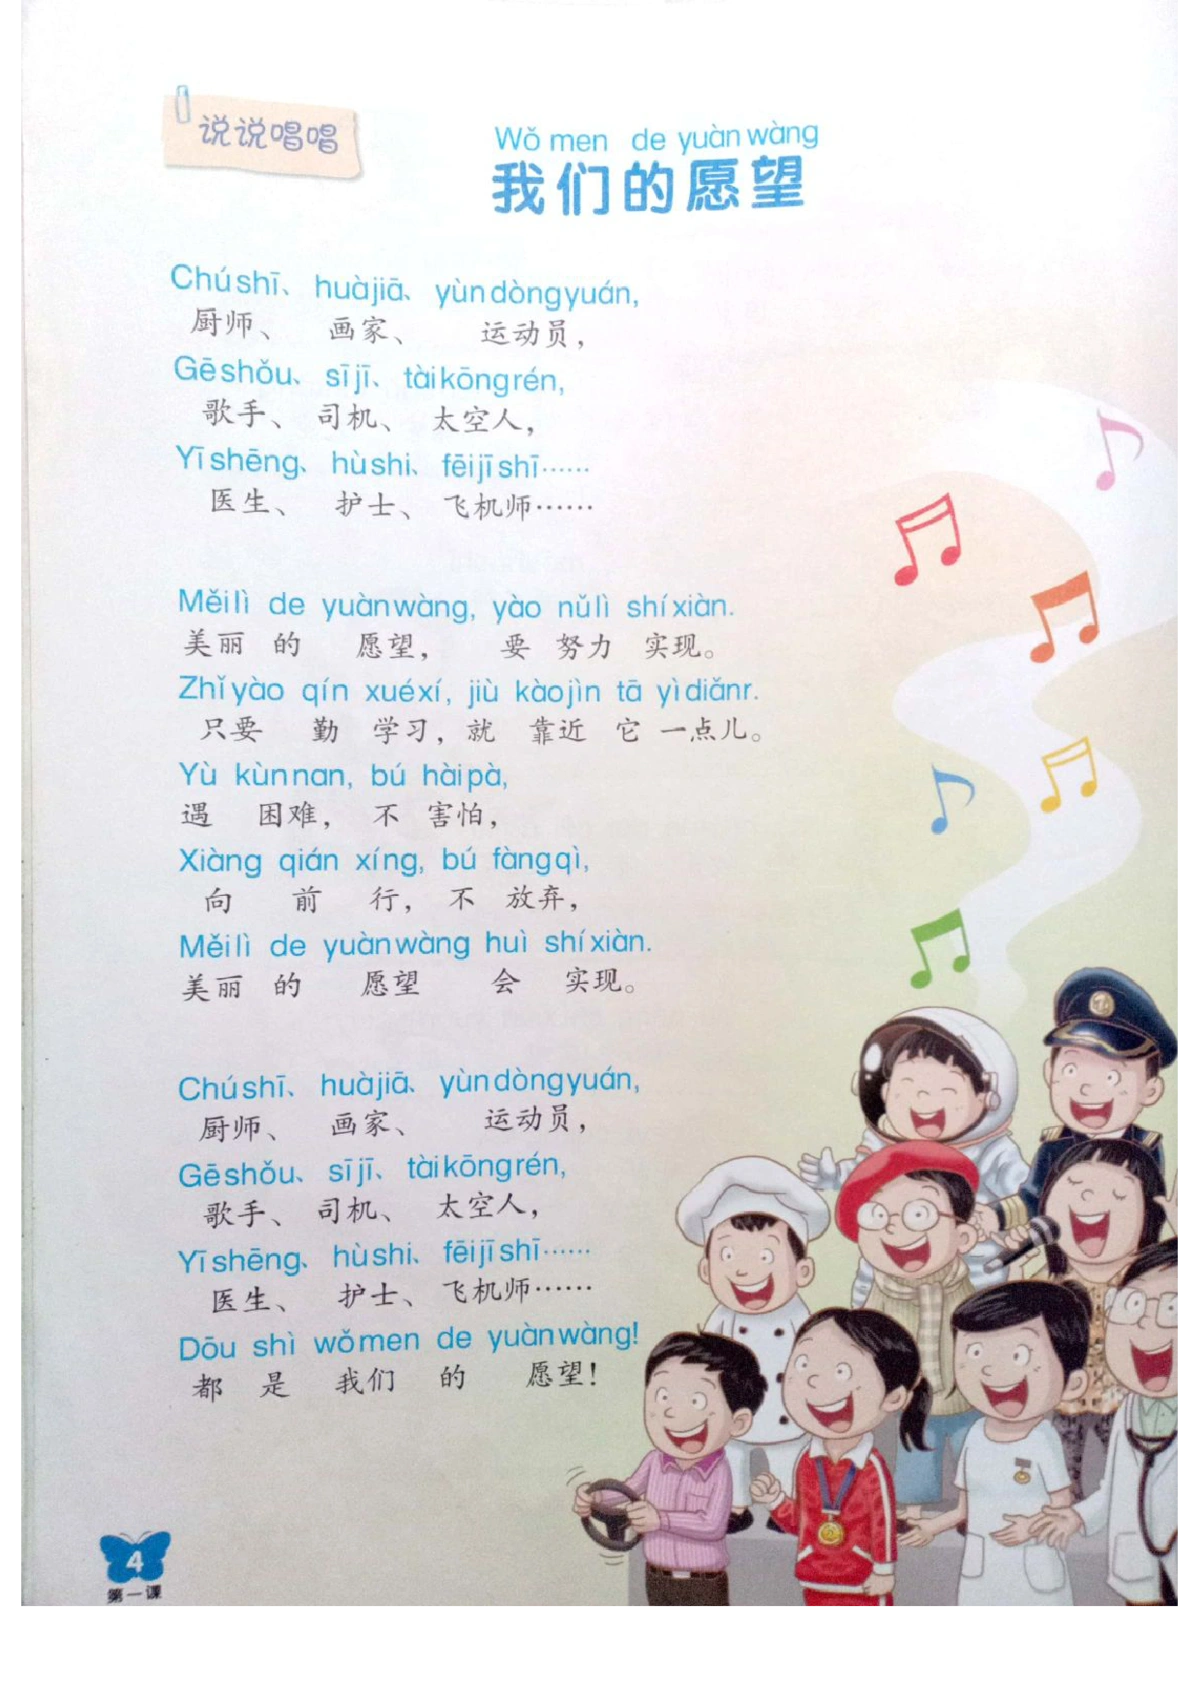 说说唱唱
Wǒ men de yuàn wàng
我们的愿望
Chúshī、huàjiā、yùndòngyuán,
厨师、画家、运动员，
Gēshǒu、sījī、tàikōngrén,
歌手、司机、太空人，
Yīshēng、hùshi、fēijīshī……
医生、护士、飞机师……
Měilì de yuànwàng, yào nǔlì shíxiàn.
美丽的愿望，要努力实现。
Zhǐyào qín xuéxí, jiù kàojìn tā yìdiǎnr.
只要勤学习，就靠近它一点儿。
Yù kùnnan, bú hàipà,
遇困难，不害怕，
Xiàng qián xíng, bú fàngqì,
向前行，不放弃，
Měilì de yuànwàng huì shíxiàn.
美丽的愿望会实现。
Chúshī、huàjiā、yùndòngyuán,
厨师、画家、运动员，
Gēshǒu、sījī、tàikōngrén,
歌手、司机、太空人，
Yīshēng、hùshi、fēijīshī……
医生、护士、飞机师……
Dōu shì wǒmen de yuànwàng!
都是我们的愿望！
4
第一课